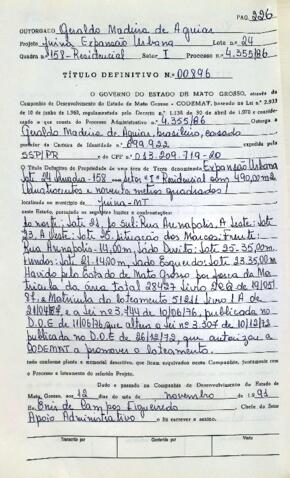 PAG. 226
OUTORGADO Geraldo Madeira de Aguiar
Projeto Juina Expansão Urbana Lote n.º 24
Quadra n.º 158-Residencial Setor I Processo n.º 4.355/86
TÍTULO DEFINITIVO N.º 00896
O GOVERNO DO ESTADO DE MATO GROSSO, através da
Companhia de Desenvolvimento do Estado de Mato Grosso - CODEMAT, baseado na Lei n.º 2.933
de 10 de junho de 1.969, regulamentada pelo Decreto n.º 1.138 de 30 de abril de 1.970 e
considerando o que consta do Processo Administrativo n.º 4.355/86 Outorga a
Geraldo Madeira de Aguiar, brasileiro, casado
portador da Carteira de Identidade n.º 099.922 expedida pela
SSP/PR e do CPF n.º 013.209.719-20
O Título Definitivo de Propriedade de uma área de Terra denominada Expansão Urbana
lote 24 Quadra-158 setor I Residencial c/área 490,00m2
(Quatrocentos e noventa metros quadrados)
localizada no município de Juina-MT
neste Estado, possuindo os seguintes limites e confrontações:
Ao norte: lote 21, Ao sul: Rua Arenapolis. A Leste: lote
23. A Oeste: lote 25. Situação dos Marcos: Frente:
Rua Arenapolis-14,00m, Lado Direito: lote 25-35,00m.
Fundos: lote 21-14,00m, Lado Esquerdo: lote 23.35,00m
Havido pelo Estado de Mato Grosso por força da Ma-
tricula da área total 28427 Livro
a Matricula do loteamento Livro 1 A de
e a lei nº 3.744 de 10/06/76, publicada no
D.O.E de 11/06/76 que altera a lei nº 3.307 de 10/12/72
publicada no D.O.E de 26/12/72, que autoriza a
CODEMAT a promover o loteamento.
tudo conforme planta e memorial descritivo, que ficam arquivados nessa Companhia, juntamente com
o Processo e loteamento do referido Projeto.
Dado e passado na Companhia de Desenvolvimento do Estado de
Mato, Grosso, aos 12 dias do mês de novembro de 1.991
Eu Enir de Campos Figueiredo Chefe do Setor
Apoio Administrativo o fiz escrever e assino.
Transcrito por Conferido por Visto